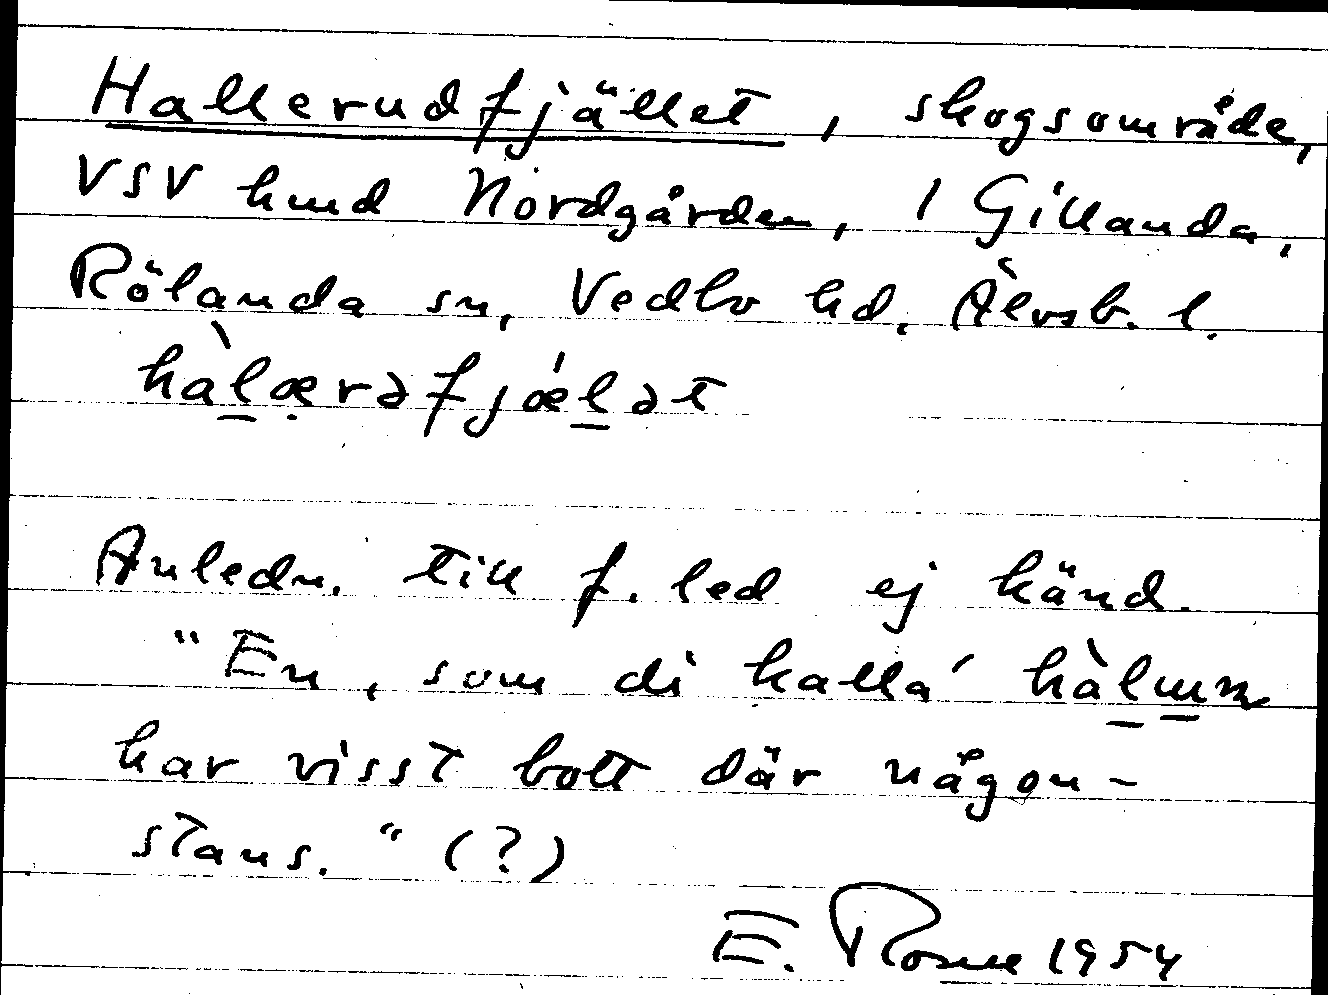 Hallerudfjället, skogsområde,
VSV hmd Nordgården, 1 Gillanda,
Rölanda sn, Vedbo hd, Älvsb. l.
hàlærəfjǽlət
Anledn. till f. led ej känd.
"En, som di kalla' hàlmm
har visst bott där någon-
stans." (?)
E. 1954